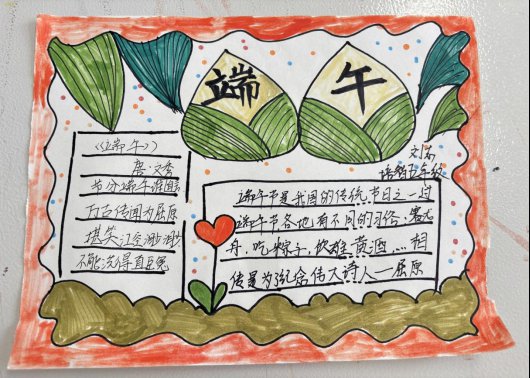 端午
《端午》
唐·文秀
节分端午谁言
万古传闻为屈原
堪笑江空渺渺
不能洗得直臣冤
端午节是我国的传统节日之一过
端午节各地有不同的习俗.赛龙
舟,吃粽子,饮雄黄酒...相
传是为了纪念伟大诗人—屈原